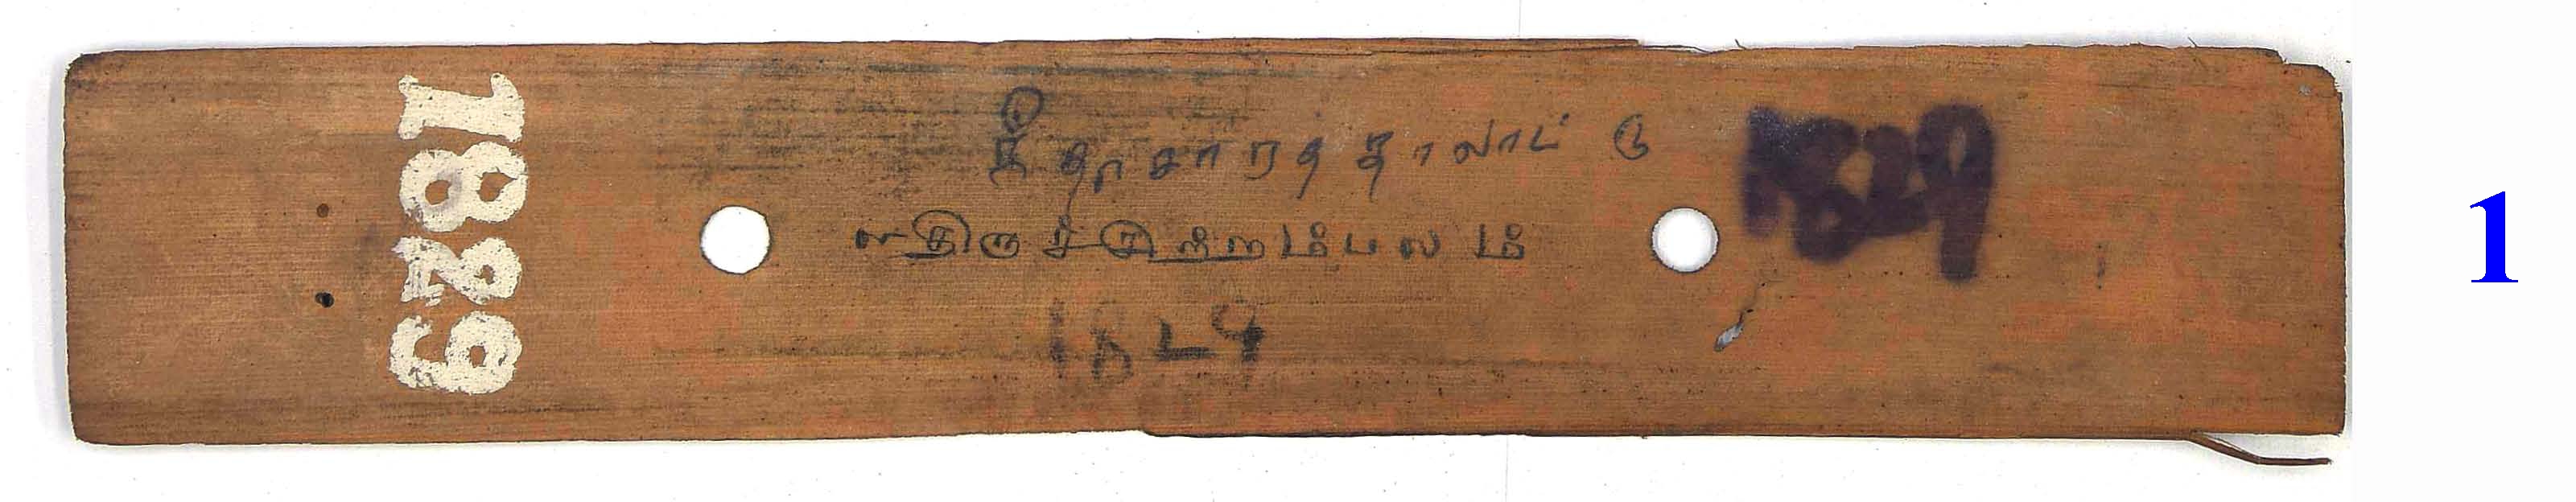 கீதாசாரத்தாலாட்டு
திருச்சிற்றம்பலம்
1829
1829
1829
1